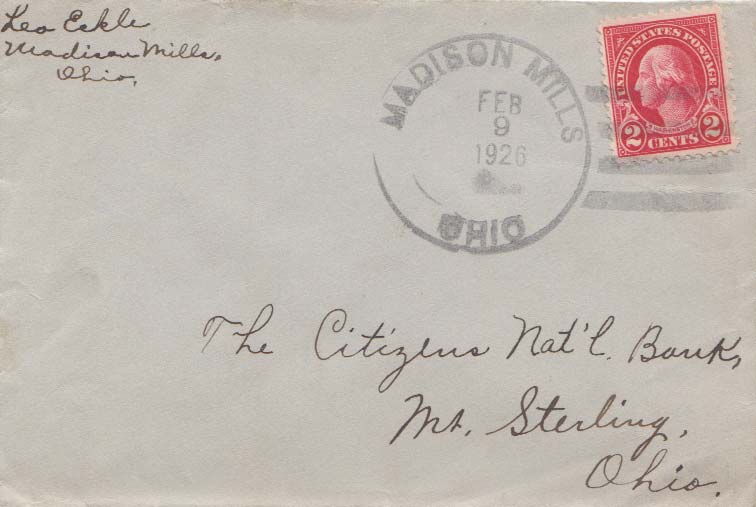 Leo Eckle
Madison Mills,
Ohio.
MADISON MILLS
FEB
9
1926
OHIO
UNITED STATES POSTAGE
WASHINGTON
2 CENTS 2
The Citizens Nat'l. Bank,
Mt. Sterling,
Ohio.